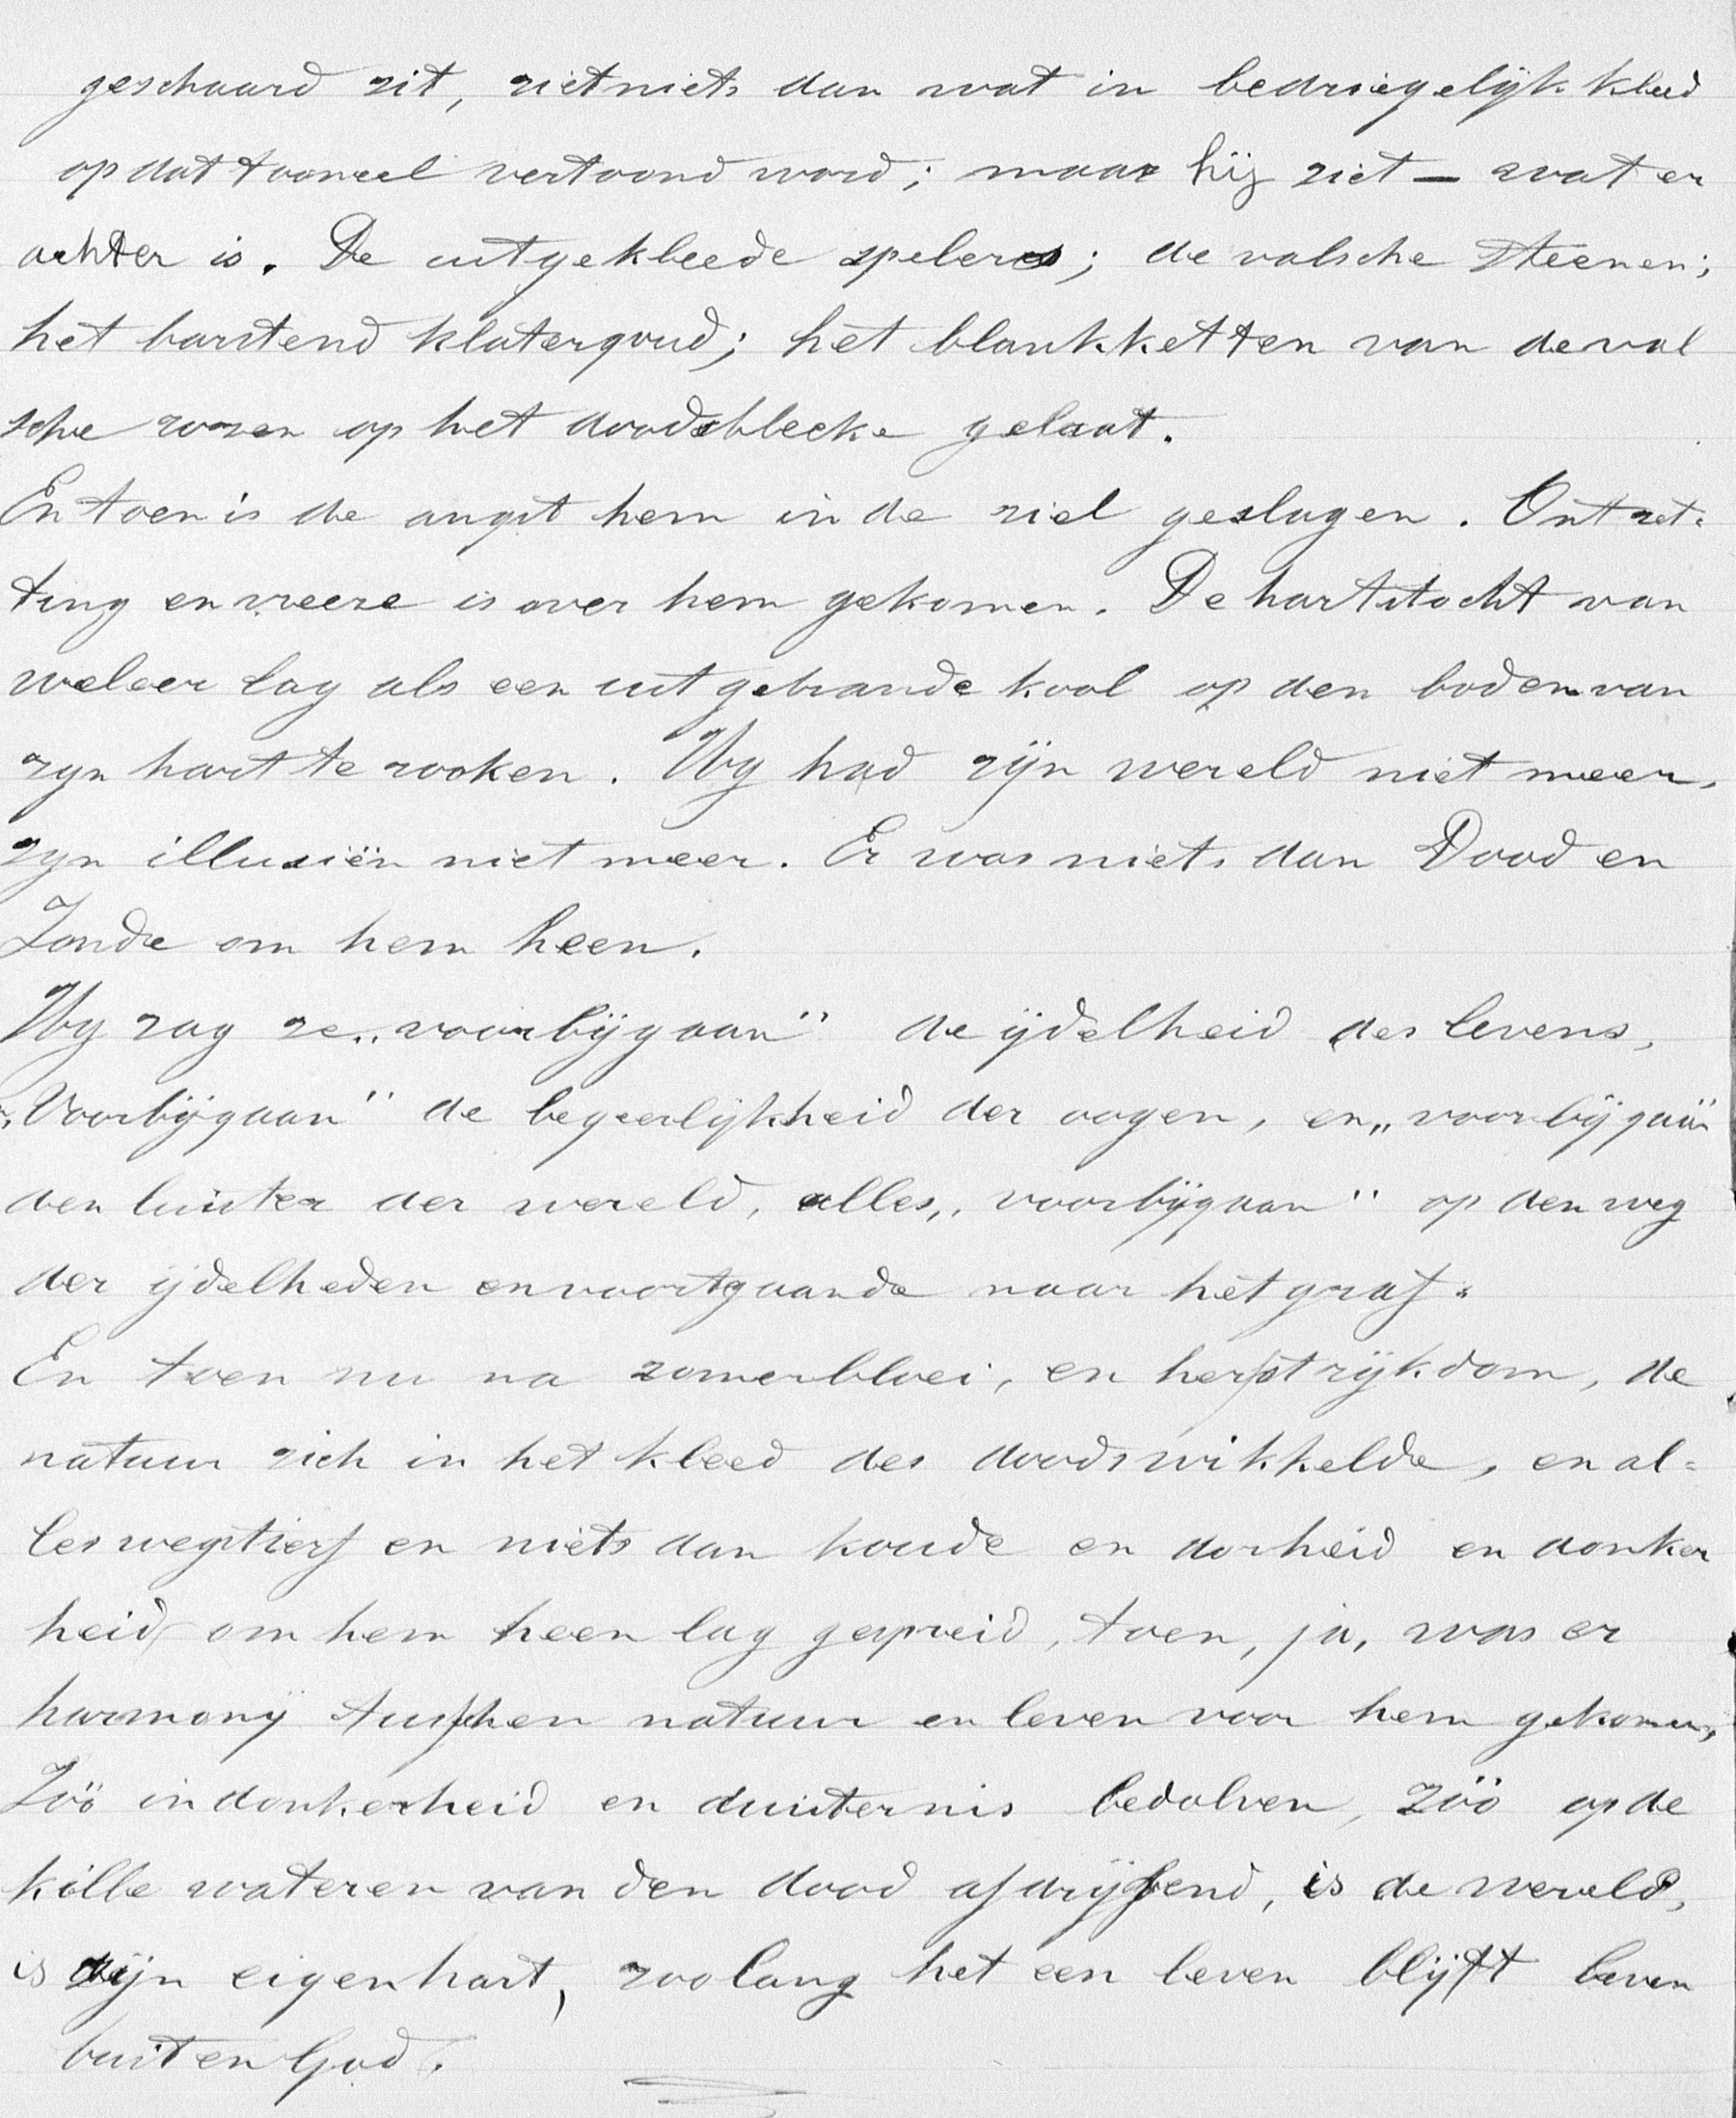 geschaard zit, ziet niets dan wat in bedriegelijk kleed
op dat tooneel vertoond word; maar hij ziet — wat er
achter is. De uitgekleede spelers; de valsche steenen;
het barstend klatergoud; het blankketten van de val
sche rozen op het doodsbleeke gelaat.
En toen is de angst hem in de ziel geslagen. Ontzet=
ting en vreeze is over hem gekomen. De hartstocht van
weleer lag als een uitgebrande kool op den bodem van
zyn hart te rooken. Hy had zijn wereld niet meer,
zyn illusiën niet meer. Er was niets dan Dood en
Zonde om hem heen.
Hy zag ze „voorbijgaan" de ijdelheid des levens,
„Voorbijgaan" de begeerlijkheid der oogen, en „voorbijgaan"
den luister der wereld, alles „voorbijgaan" op den weg
der ijdelheden en voortgaande naar het graf.
En toen nu na zomerbloei, en herfstrijkdom, de
natuur zich in het kleed des doods wikkelde, en al=
les wegstierf en niets dan koude en dorheid en donker
heid om hem heen lag gespreid, toen, ja, was er
harmonij tusschen natuur en leven voor hem gekomen,
Zóó in donkerheid en duisternis bedolven, zóó op de
kille wateren van den dood afdrijvend, is de wereld,
is zijn eigen hart, zoolang het een leven blijft leven
buiten God.